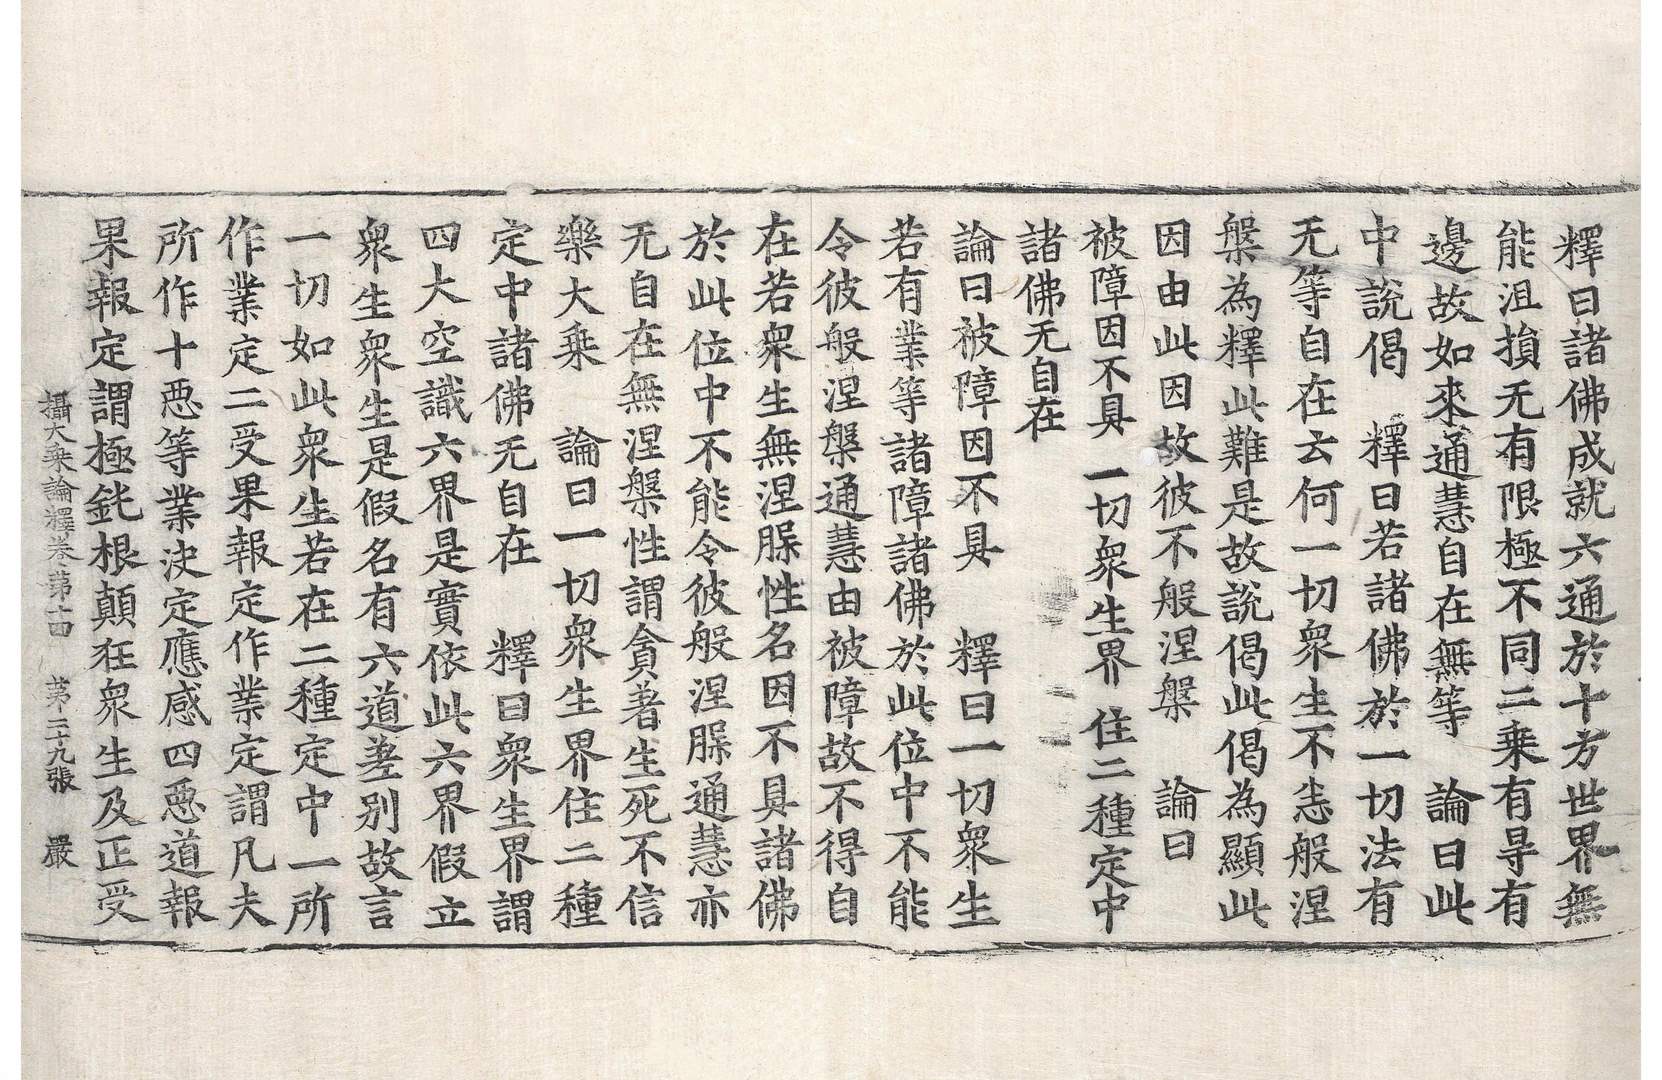 釋曰諸佛成就六通於十方世界無
能沮損无有限極不同二乗有㝵有
邊故如來通慧自在無等　論曰此
中說偈　釋曰若諸佛於一切法有
无等自在云何一切衆生不恙般涅
槃為釋此難是故說偈此偈為顯此
因由此因故彼不般涅槃　論曰
被障因不具　一切衆生界　住二種定中
諸佛无自在
論曰被障因不具　釋曰一切衆生
若有業等諸障諸佛於此位中不能
令彼般涅槃通慧由被障故不得自
在若衆生無涅槃性名因不具諸佛
於此位中不能令彼般涅槃通慧亦
无自在無涅槃性謂貪著生死不信
樂大乗　論曰一切衆生界住二種
定中諸佛无自在　釋曰衆生界謂
四大空識六界是實依此六界假立
衆生衆生是假名有六道差别故言
一切如此衆生若在二種定中一所
作業定二受果報定作業定謂凡夫
所作十惡等業決定應感四惡道報
果報定謂極鈍根顛狂衆生及正受
攝大乗論釋卷第十四　第二十九張　嚴